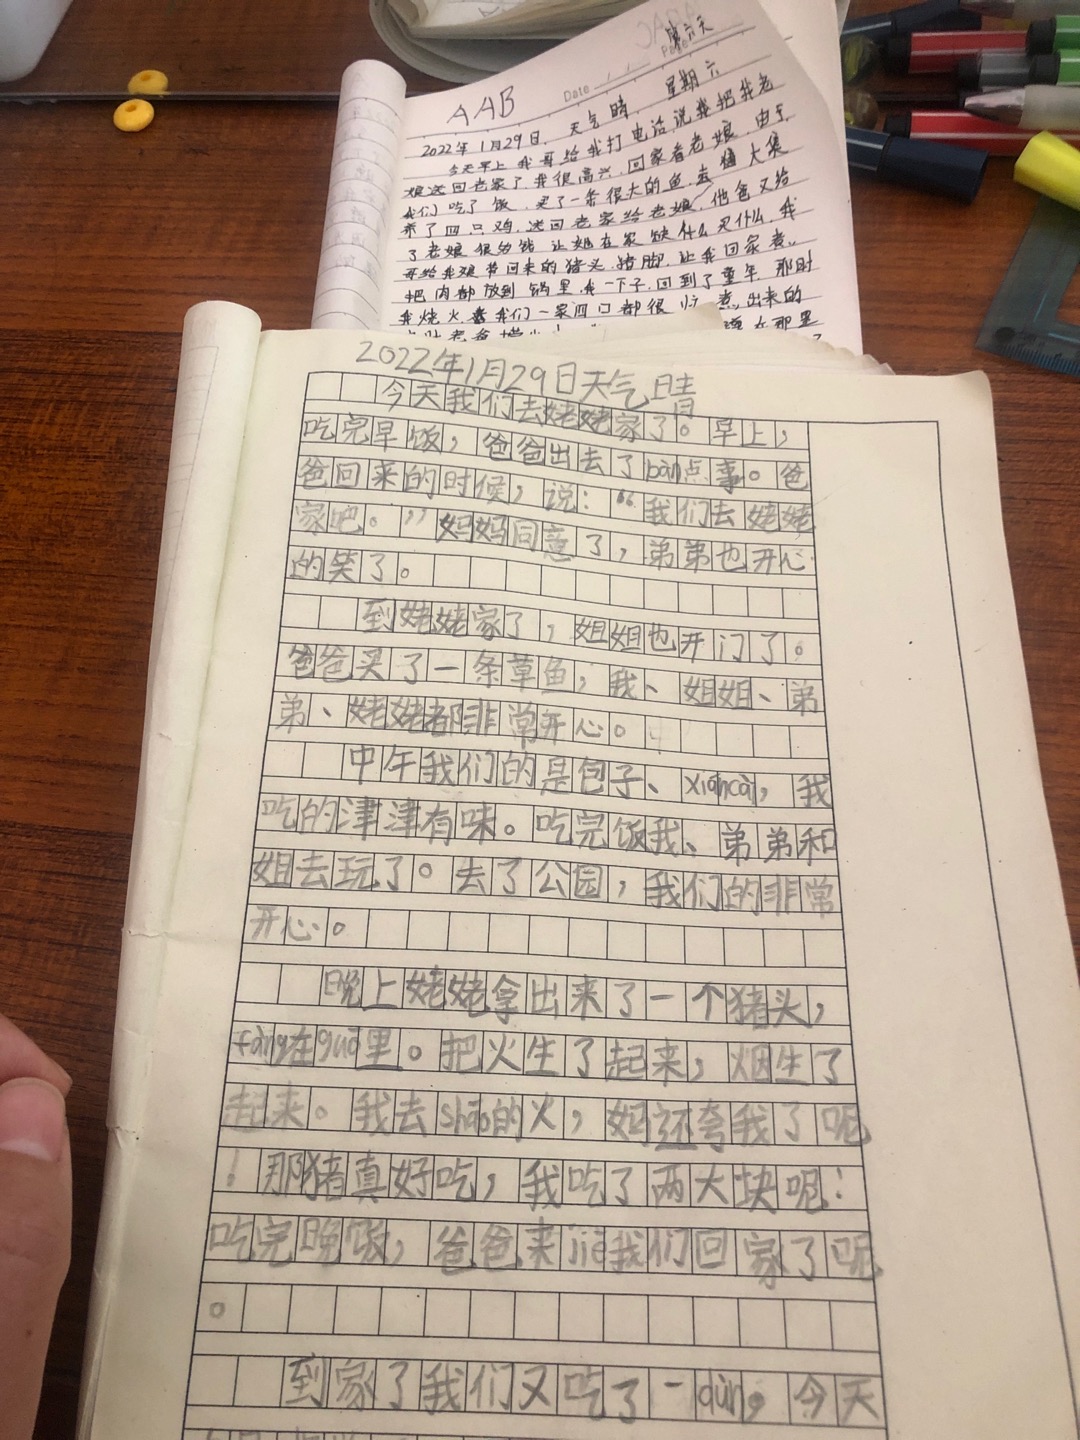 第六天
Date
AAB
2022年1月29日. 天气晴 星期六
今天早上我哥给我打电话说我把我老
娘送回老家了,我很高兴,回家看老娘,由于
我们吃了饭,买了一条很大的鱼,去 大集
买了四只鸡,送回老家给老娘,他爸又给
了老娘很多钱 让她在家缺什么买什么,我
哥给我娘 回来的猪头,猪脚,让我回家煮,
把肉都放到锅里,我一下子,回到了童年,那时
我烧火煮我们一家四口都很 煮出来的
在那里
2022年1月29日天气晴
今天我们去姥姥家了。早上,
吃完早饭,爸爸出去了bàn点事。爸
爸回来的时候,说:“我们去姥姥
家吧。”妈妈同意了,弟弟也开心
的笑了。
到姥姥家了,姐姐也开门了。
爸爸买了一条草鱼,我、姐姐、弟
弟、姥姥都非常开心。
中午我们的是包子、xiáncài,我
吃的津津有味。吃完饭我、弟弟和
姐去玩了。去了公园,我们的非常
开心。
晚上姥姥拿出来了一个猪头,
fàng在guō里。把火生了起来,烟生了
起来。我去shāo的火,妈还夸我了呢
!那猪真好吃,我吃了两大块呢!
吃完晚饭,爸爸来jiē我们回家了呢
。
到家了我们又吃了一dùn,今天